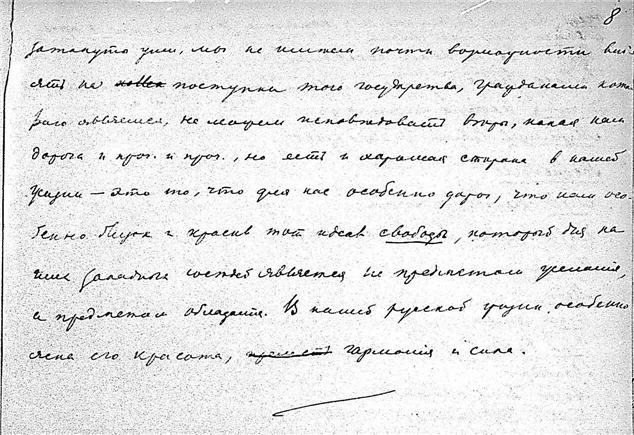 8
заткнуть уши, мы не имеем почти возможности вли
ять на поступки того государства, гражданами кото
раго являемся, не можем исповедовать веры, какая нам
дорога и проч. и проч., но есть и хорошая сторона в нашей
жизни — это то, что для нас особенно дорог, что нам осо-
бенно близок и красив тот идеал свободы, который для на
ших западных соседей является не предметом желания,
а предметом обладания. В нашей русской жизни особенно
ясна его красота, гармония и сила.